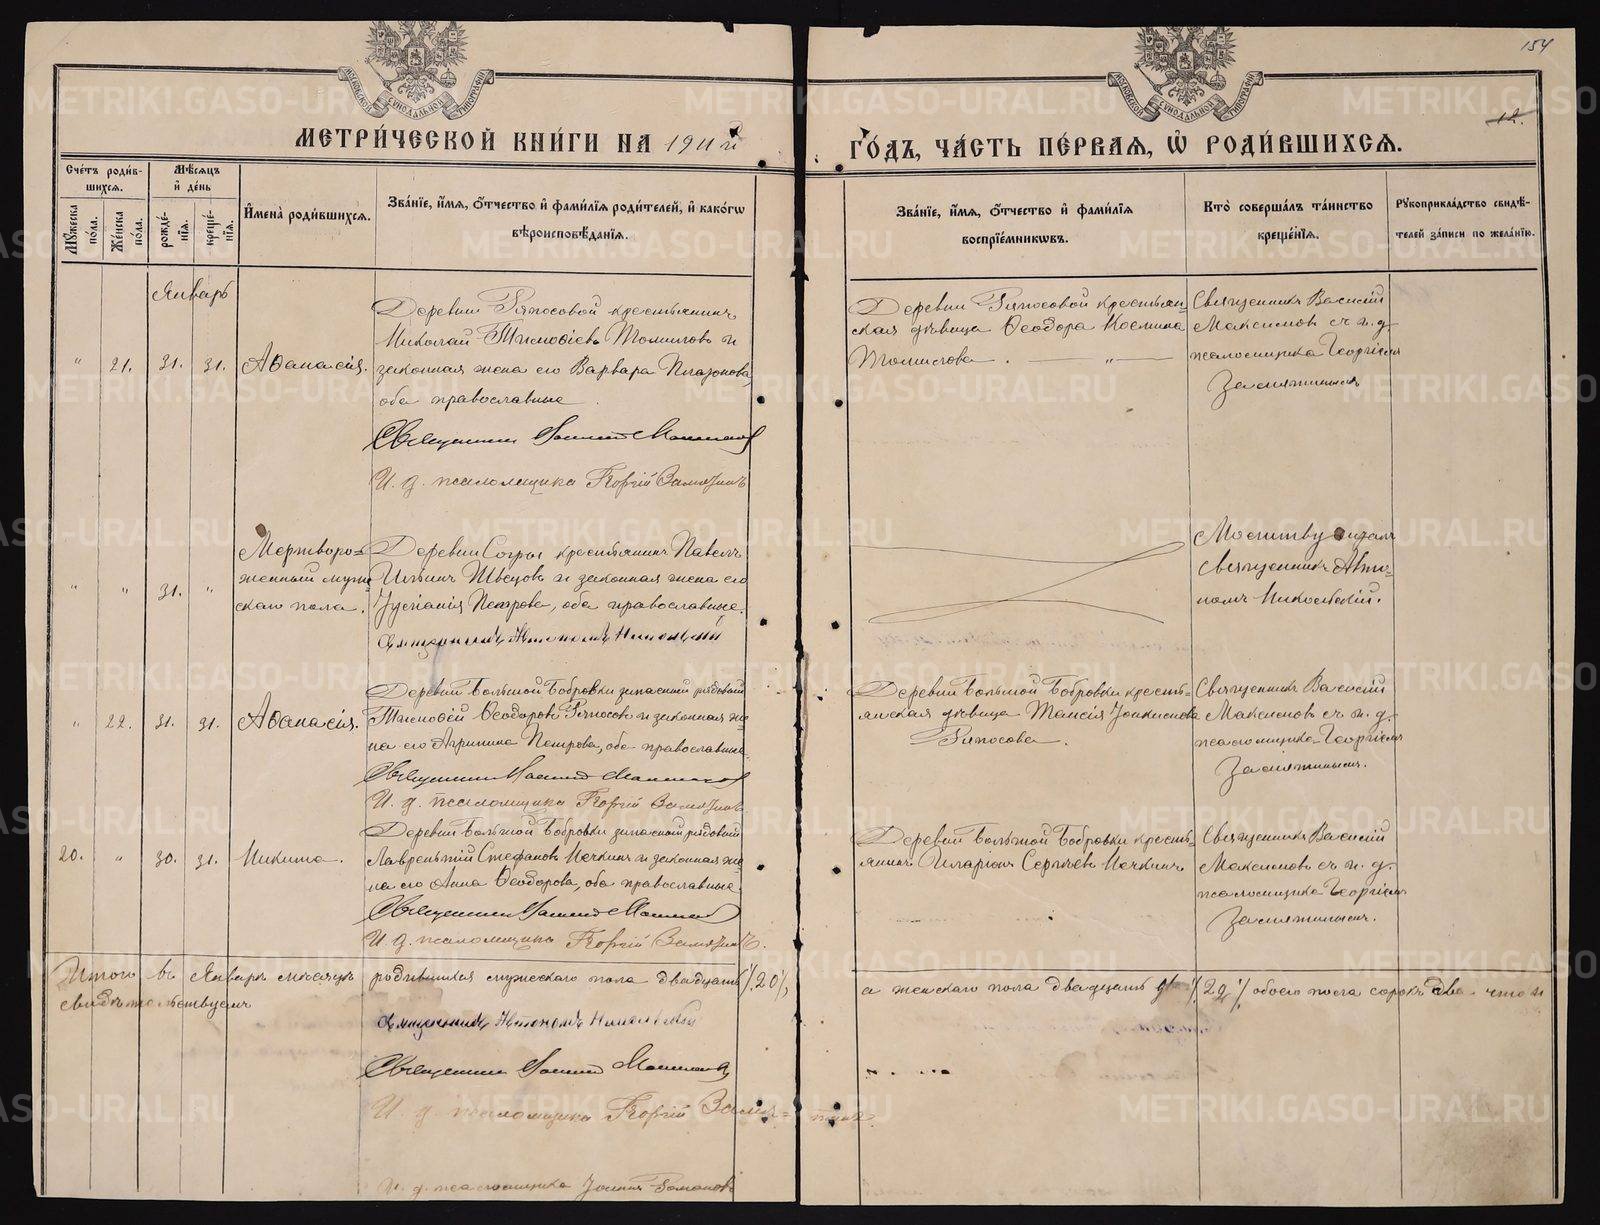 154
12.
МЕТРИ́ЧЕСКОЙ КНИ́ГИ НА 1911 й
ГО́ДЪ, ЧА́СТЬ ПЕ́РВАѦ, Ѡ҆ РОДИ́ВШИХСѦ.
Сче́тъ роди́в-
шихсѧ.
Мѣ́сѧцъ
и҆ де́нь
Мꙋ́жеска
по́ла.
Же́нска
по́ла.
рожде́-
нїѧ.
креще́-
нїѧ.
И҆мена̀ роди́вшихсѧ.
Зва́нїе, и҆́мѧ, ѻ҆́тчество и҆ фами́лїѧ роди́телей, и҆ како́гѡ
вѣроисповѣ́данїѧ.
Зва́нїе, и҆́мѧ, ѻ҆́тчество и҆ фами́лїѧ
воспрїе́мникѡвъ.
Кто̀ соверша́лъ та́инство
креще́нїѧ.
Рꙋкоприкла́дство свидѣ́-
телей за́писи по жела́нїю.
Январь
" 21. 31. 31. Аѳанасія.
Деревни Ряпосовой крестьянинъ
Николай Тимоѳіевъ Томиловъ и
законная жена его Варвара Платонова,
оба православные.
Священникъ Василій Максимовъ
И. д. псаломщика Георгій Замятинъ
Деревни Ряпосовой крестьян-
ская дѣвица Ѳеодора Космина
Томилова. — " —
Священникъ Василій
Максимовъ съ и. д.
псаломщика Георгіемъ
Замятинымъ
" " 31. "
Мертворо-
жденный муже-
скаго пола.
Деревни Согры крестьянинъ Павелъ
Ильинъ Швецовъ и законная жена его
Іустинія Петрова, оба православные.
Священникъ Автономъ Никольскій
Молитву читалъ
священникъ Авто-
номъ Никольскій.
" 22. 31. 31. Аѳанасія.
Деревни Большой Бобровки запасный рядовой
Тимоѳій Ѳеодоровъ Ряпосовъ и законная же-
на его Агрипина Петрова, оба православные
Священникъ Василій Максимовъ
И. д. псаломщика Георгій Замятинъ
Деревни Большой Бобровки кресть-
янская дѣвица Таисія Іоакимова
Ряпосова.
Священникъ Василій
Максимовъ съ и. д.
псаломщика Георгіемъ
Замятинымъ.
20. " 30. 31. Никита.
Деревни Большой Бобровки запасный рядовой
Лаврентій Стефановъ Нечкинъ и законная же-
на его Анна Ѳеодорова, оба православные.
Священникъ Василій Максимовъ
И. д. псаломщика Георгій Замятинъ.
Деревни Большой Бобровки кресть-
янинъ Иларіонъ Сергѣевъ Нечкинъ
Священникъ Василій
Максимовъ съ и. д.
псаломщика Георгіемъ
Замятинымъ.
Итого въ Январѣ мѣсяцѣ родившихся мужескаго пола двадцать /20/,
а женскаго пола двадцать два /22/ обоего пола сорокъ два что и
свидѣтельствуемъ
Священникъ Автономъ Никольскій
Священникъ Василій Максимовъ
И. д. псаломщика Георгій Замятинъ.
И. д. псаломщика Романовъ
METRIKI.GASO-URAL.RU